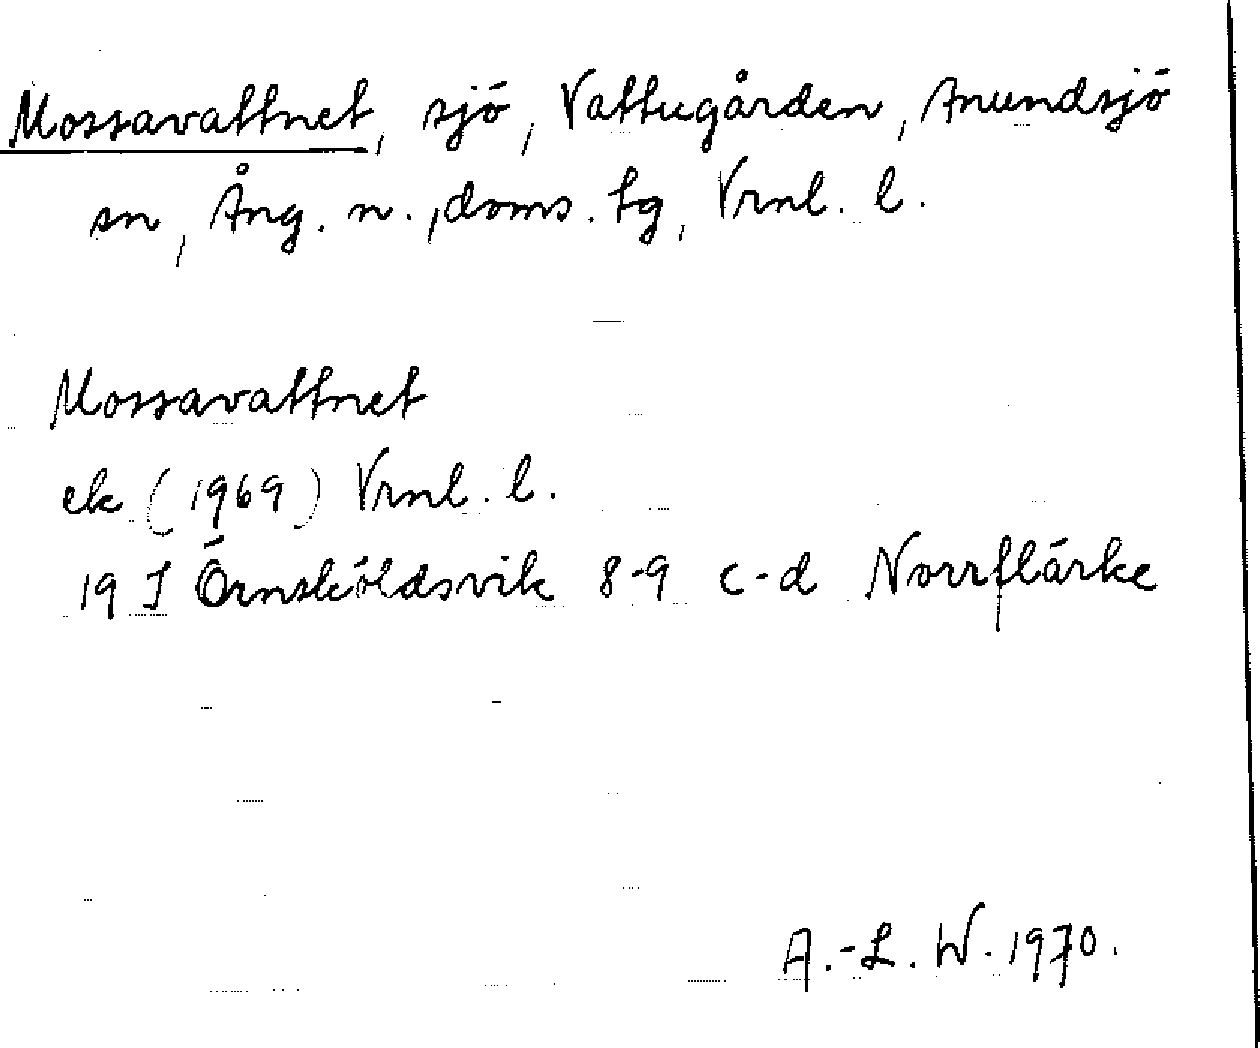 Mossavattnet, sjö, Vattugården, Anundsjö
sn, Ång. n., doms. tg, Vrnl. l.
Mossavattnet
ek (1969) Vrnl. l.
19 I Örnsköldsvik 8-9 c-d Norrflärke
A.-L. W. 1970.